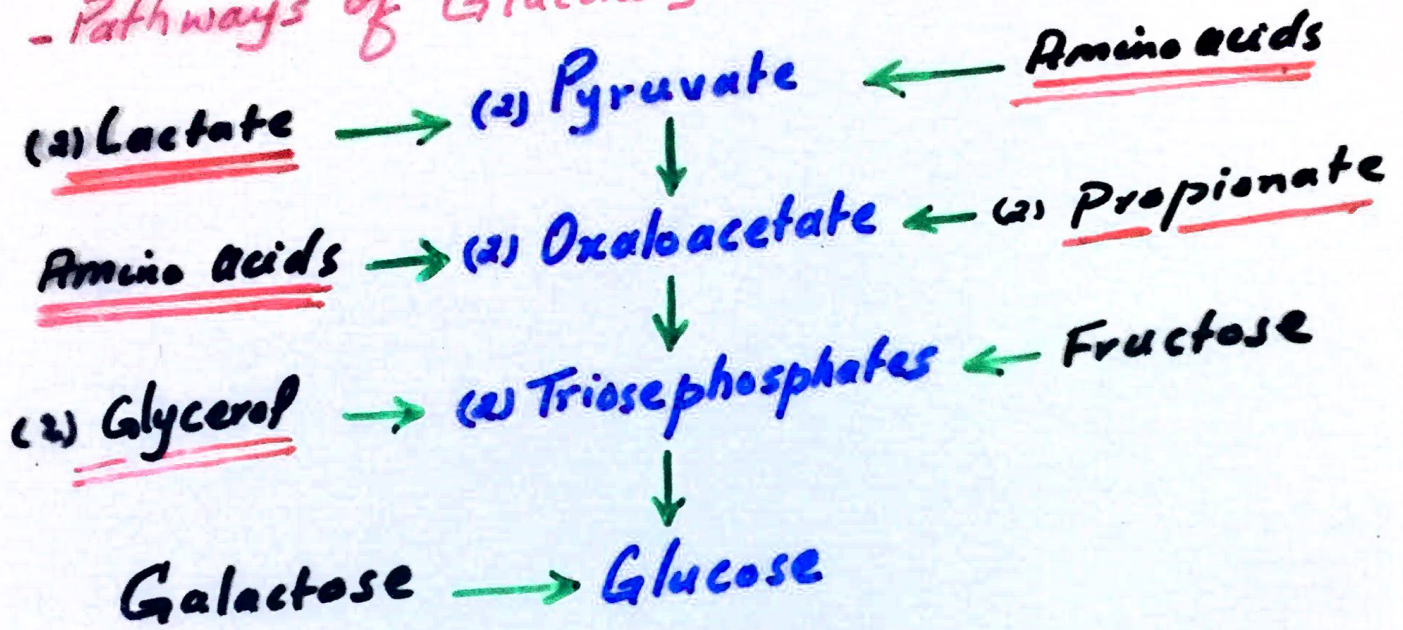 - Pathways of
(2) Lactate → (2) Pyruvate ← Amino acids
Amino acids → (2) Oxaloacetate ← (2) Propionate
(2) Glycerol → (2) Triosephosphates ← Fructose
Galactose → Glucose